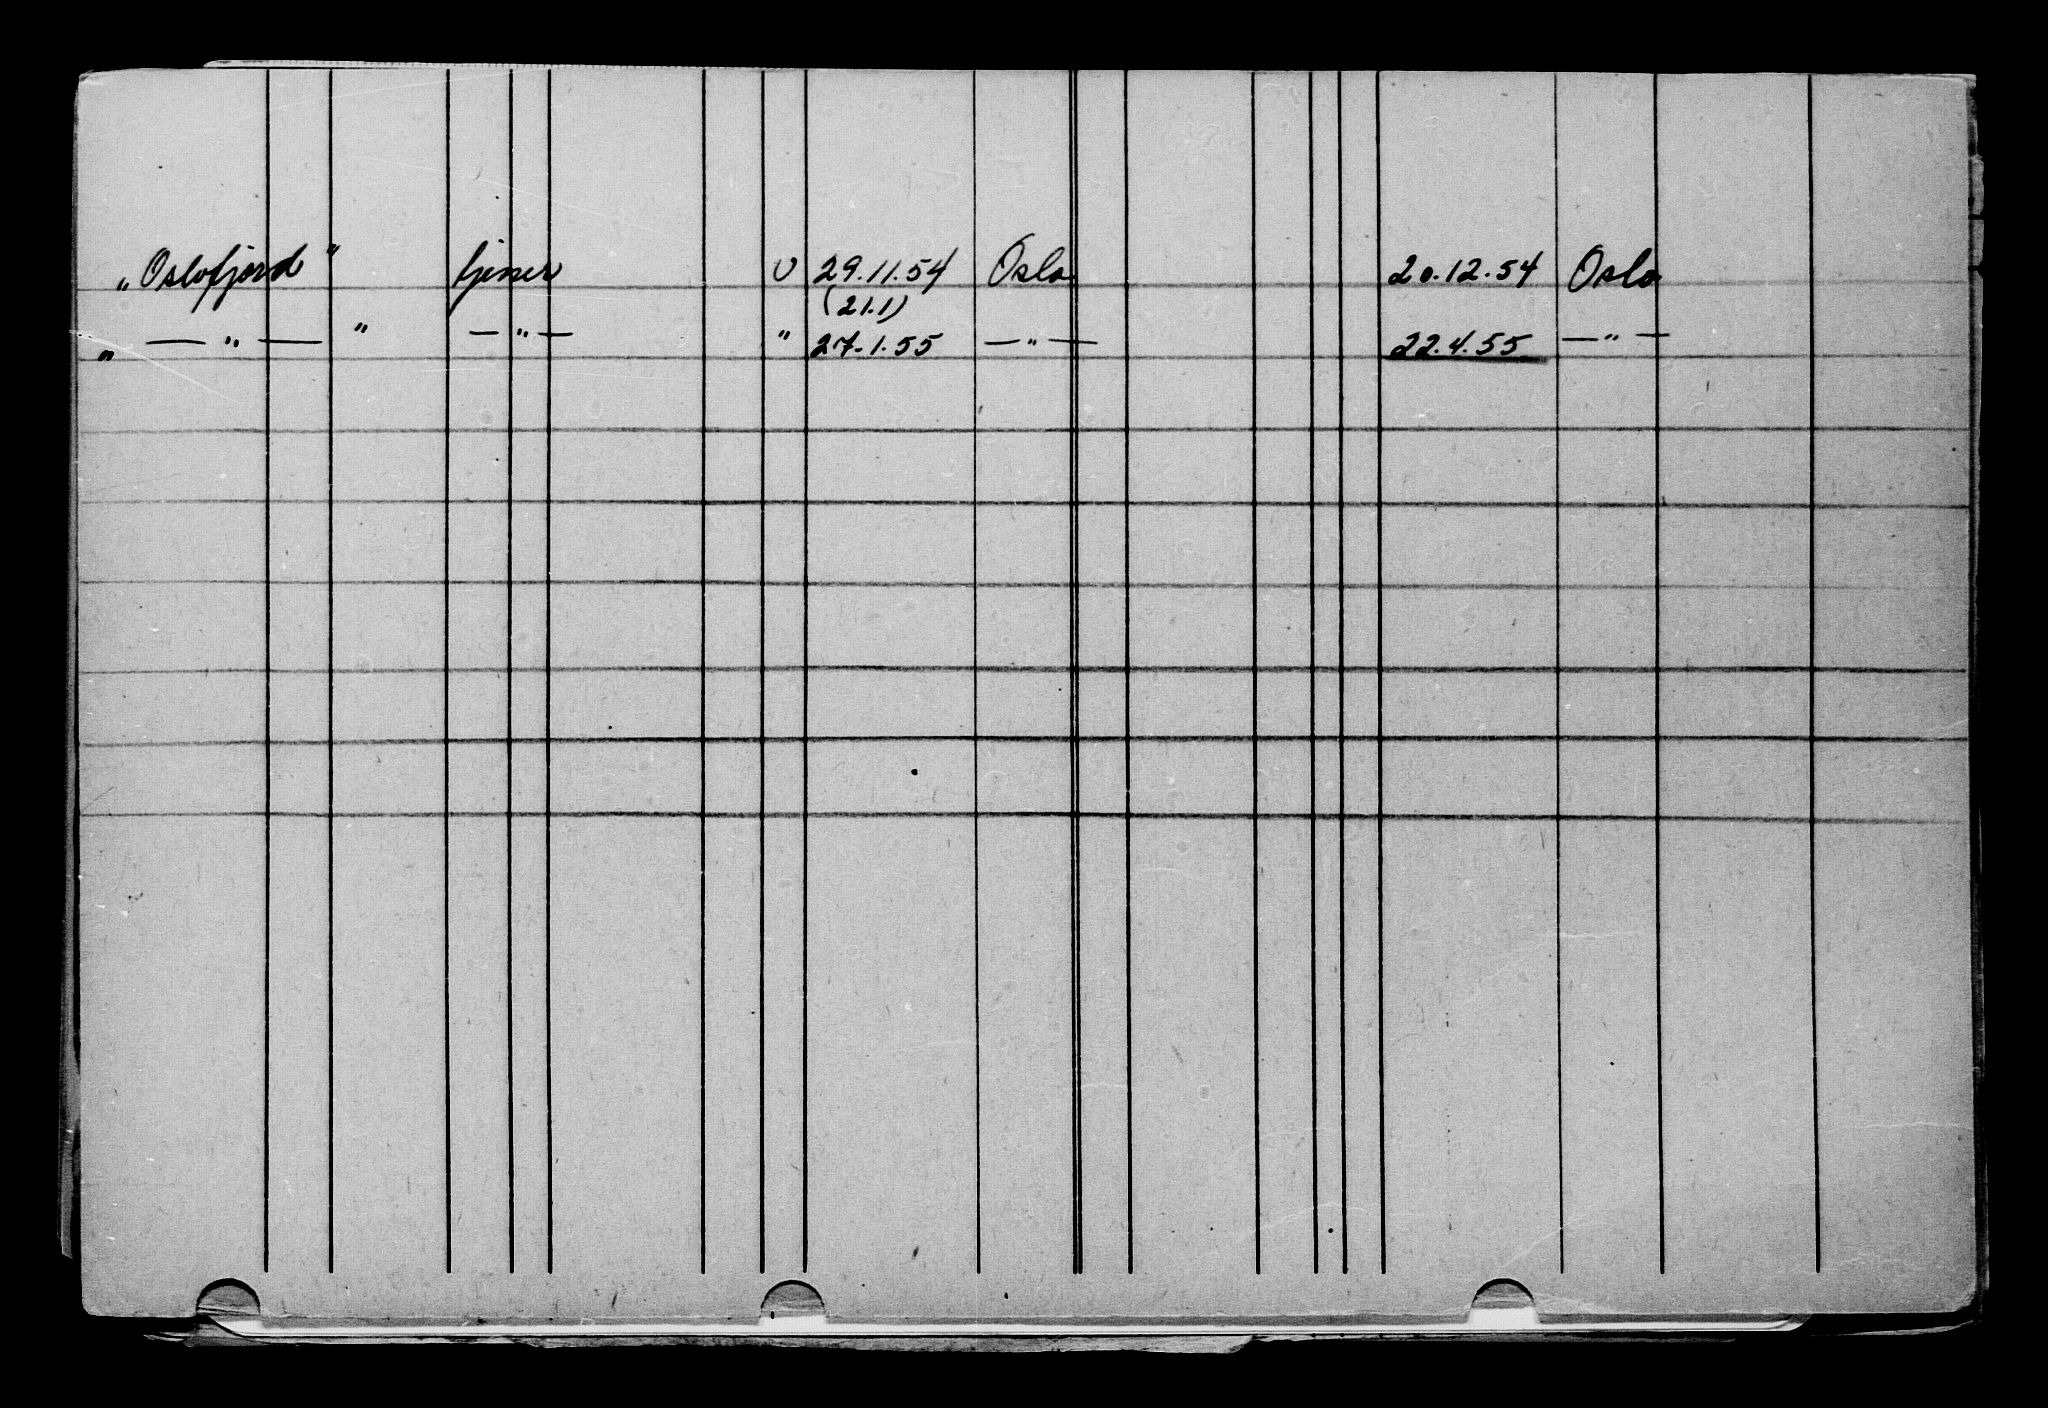 „Oslofjord" tjener U 29.11.54 Oslo 20.12.54 Oslo
(21.1)
„ — " — " — " — " 27.1.55 — " — 22.4.55 — " —